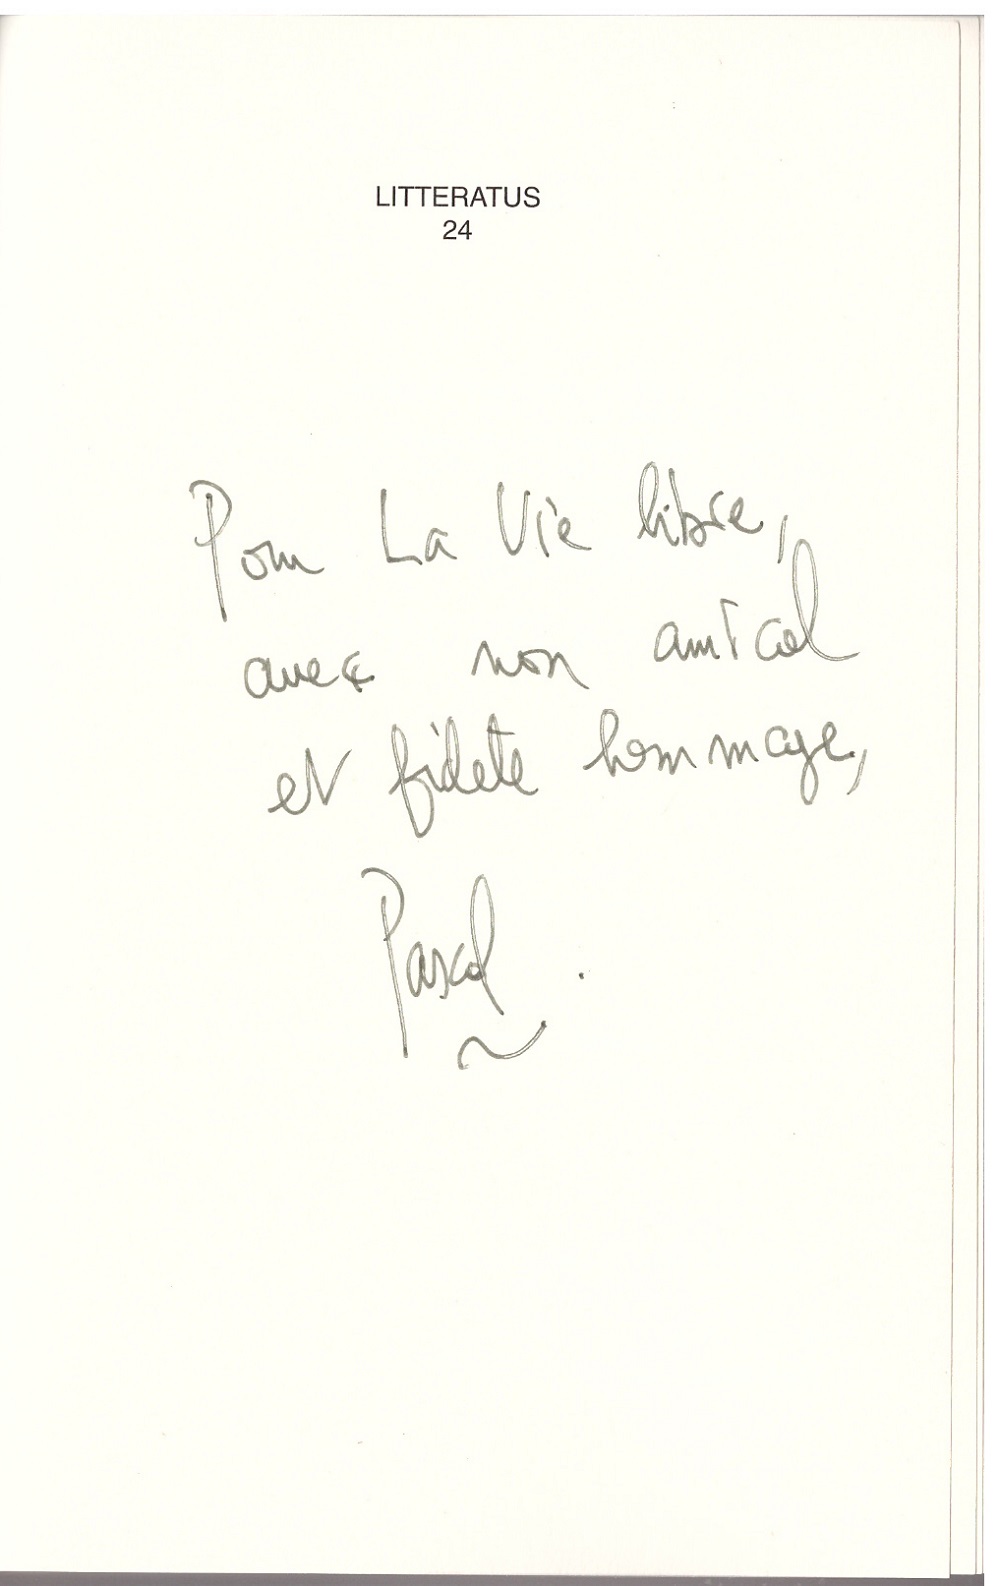 LITTERATUS
24
Pour La Vie libre,
avec mon amical
et fidèle hommage,
Pascal.